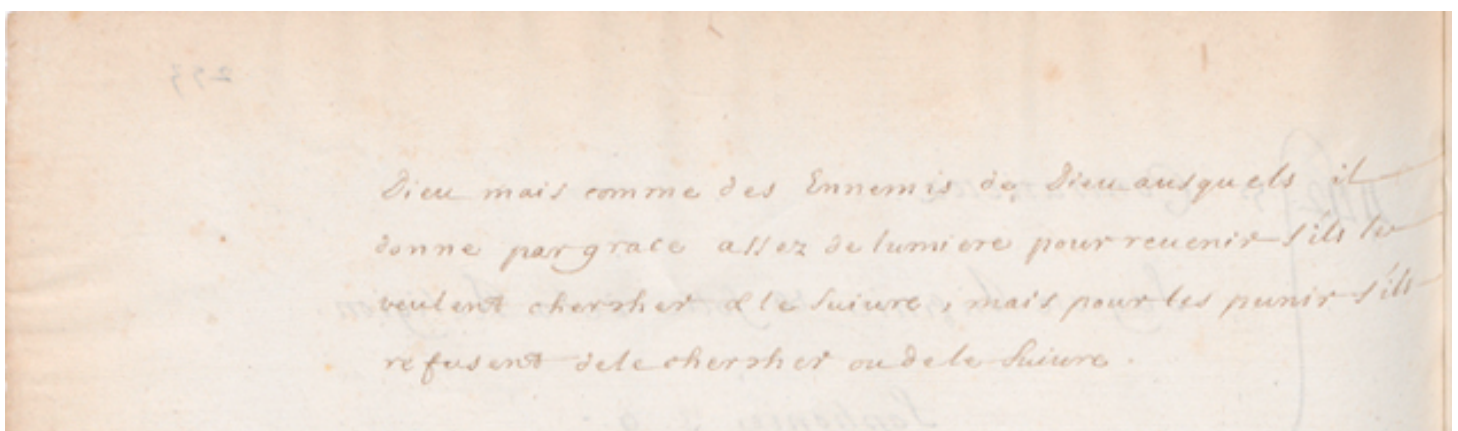 Dieu mais comme des Ennemis de Dieu ausquels il
donne par grace assez de lumiere pour reuenir s'ils le
veulent chercher & le suiure, mais pour les punir s'ils
refusent de le chercher ou de le suiure.